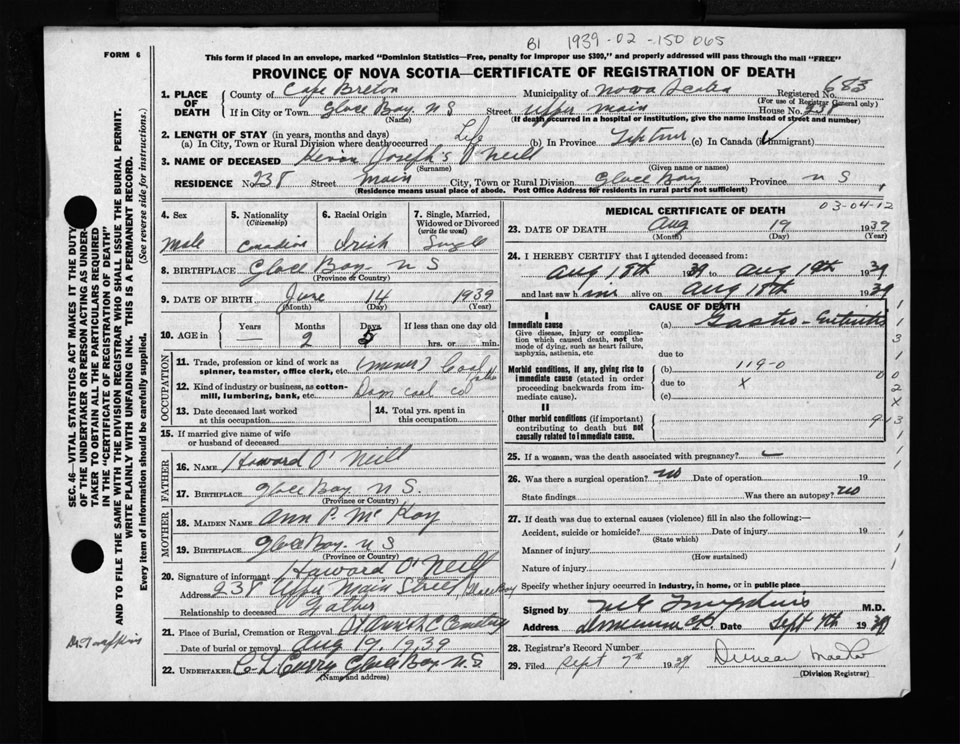 B1 1939-02-150065
FORM 6
This form if placed in an envelope, marked "Dominion Statistics—Free, penalty for improper use $300," and properly addressed will pass through the mail "FREE"
PROVINCE OF NOVA SCOTIA—CERTIFICATE OF REGISTRATION OF DEATH
SEC. 46—VITAL STATISTICS ACT MAKES IT THE DUTY
OF THE UNDERTAKER OR PERSON ACTING AS UNDER-
TAKER TO OBTAIN ALL THE PARTICULARS REQUIRED
IN THE "CERTIFICATE OF REGISTRATION OF DEATH"
AND TO FILE THE SAME WITH THE DIVISION REGISTRAR WHO SHALL ISSUE THE BURIAL PERMIT.
WRITE PLAINLY WITH UNFADING INK. THIS IS A PERMANENT RECORD.
Every item of information should be carefully supplied. (See reverse side for instructions.)
1. PLACE OF DEATH County of Cape Breton Municipality of Nova Scotia Registered No. 683
(For use of Registrar General only)
If in City or Town Glace Bay, N S Street Upper Main House No. 238
(Name) (If death occurred in a hospital or institution, give the name instead of street and number)
2. LENGTH OF STAY (in years, months and days)
(a) In City, Town or Rural Division where death occurred Life (b) In Province Life time (c) In Canada (if immigrant)
3. NAME OF DECEASED Joseph O'Neill
(Surname) (Given name or names)
RESIDENCE No. 238 Street Main City, Town or Rural Division Glace Bay Province N S
(Residence means usual place of abode. Post Office Address for residents in rural parts not sufficient)
4. Sex Male
5. Nationality (Citizenship) Canadian
6. Racial Origin Irish
7. Single, Married, Widowed or Divorced (write the word) Single
8. BIRTHPLACE Glace Bay N S
(Province or Country)
9. DATE OF BIRTH June 14 1939
(Month) (Day) (Year)
10. AGE in Years — Months 2 Days 5 If less than one day old hrs. or min.
OCCUPATION
11. Trade, profession or kind of work as spinner, teamster, office clerk, etc. (miner) Coal
12. Kind of industry or business, as cotton-mill, lumbering, bank, etc. Dom coal co
13. Date deceased last worked at this occupation
14. Total yrs. spent in this occupation
15. If married give name of wife or husband of deceased
FATHER
16. NAME Howard O'Neill
17. BIRTHPLACE Glace Bay N S.
(Province or Country)
MOTHER
18. MAIDEN NAME Ann P. McKay
19. BIRTHPLACE Glace Bay. N S
(Province or Country)
20. Signature of informant Howard O'Neill
Address 238 Upper Main Street, Glace Bay
Relationship to deceased Father
21. Place of Burial, Cremation or Removal St Annes C Cemetery
Date of burial or removal Aug 19, 1939
22. UNDERTAKER C. L. Curry Glace Bay N.S
(Name and address)
MEDICAL CERTIFICATE OF DEATH 03-04-12
23. DATE OF DEATH Aug 19 1939
(Month) (Day) (Year)
24. I HEREBY CERTIFY that I attended deceased from:
Aug 18th 1939 to Aug 19th 1939
and last saw him alive on Aug 18th 1939
CAUSE OF DEATH
I
Immediate cause (a) Gastro-Enteritis
Give disease, injury or complication which caused death, not the mode of dying, such as heart failure, asphyxia, asthenia, etc
due to
Morbid conditions, if any, giving rise to immediate cause (stated in order proceeding backwards from immediate cause). (b) 119-0
due to X
(c)
II
Other morbid conditions (if important) contributing to death but not causally related to immediate cause.
25. If a woman, was the death associated with pregnancy?
26. Was there a surgical operation? no Date of operation 19
State findings Was there an autopsy? no
27. If death was due to external causes (violence) fill in also the following:—
Accident, suicide or homicide? Date of injury 19
(State which)
Manner of injury
(How sustained)
Nature of injury
Specify whether injury occurred in industry, in home, or in public place
Signed by M.D.
Address Dominion CB Date Sept 7th 1939
28. Registrar's Record Number
29. Filed Sept 7th 1939 Duncan
(Division Registrar)